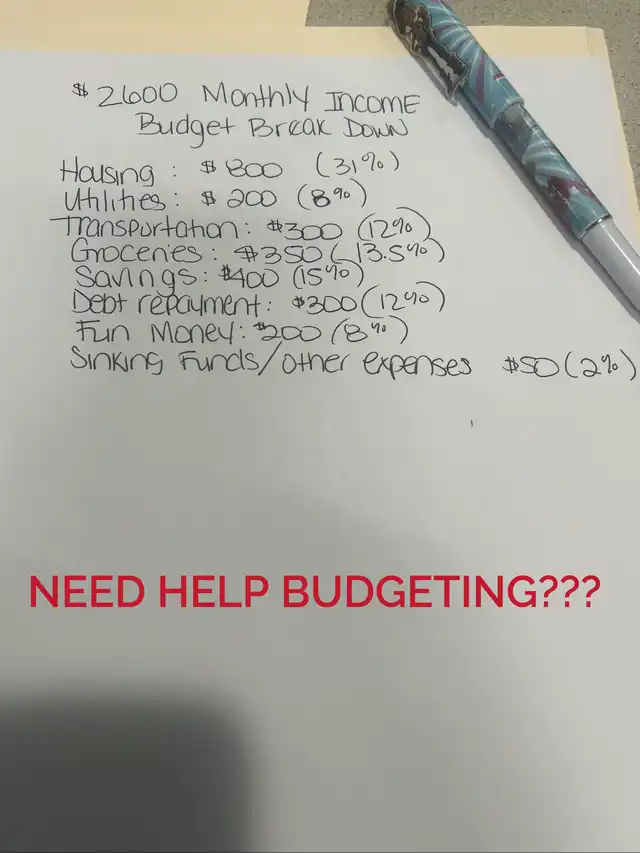 $2600 Monthly Income
Budget Break Down
Housing: $800 (31%)
Utilities: $200 (8%)
Transportation: $300 (12%)
Groceries: $350 (13.5%)
Savings: $400 (15%)
Debt repayment: $300 (12%)
Fun Money: $200 (8%)
Sinking Funds/other expenses $50 (2%)
NEED HELP BUDGETING???